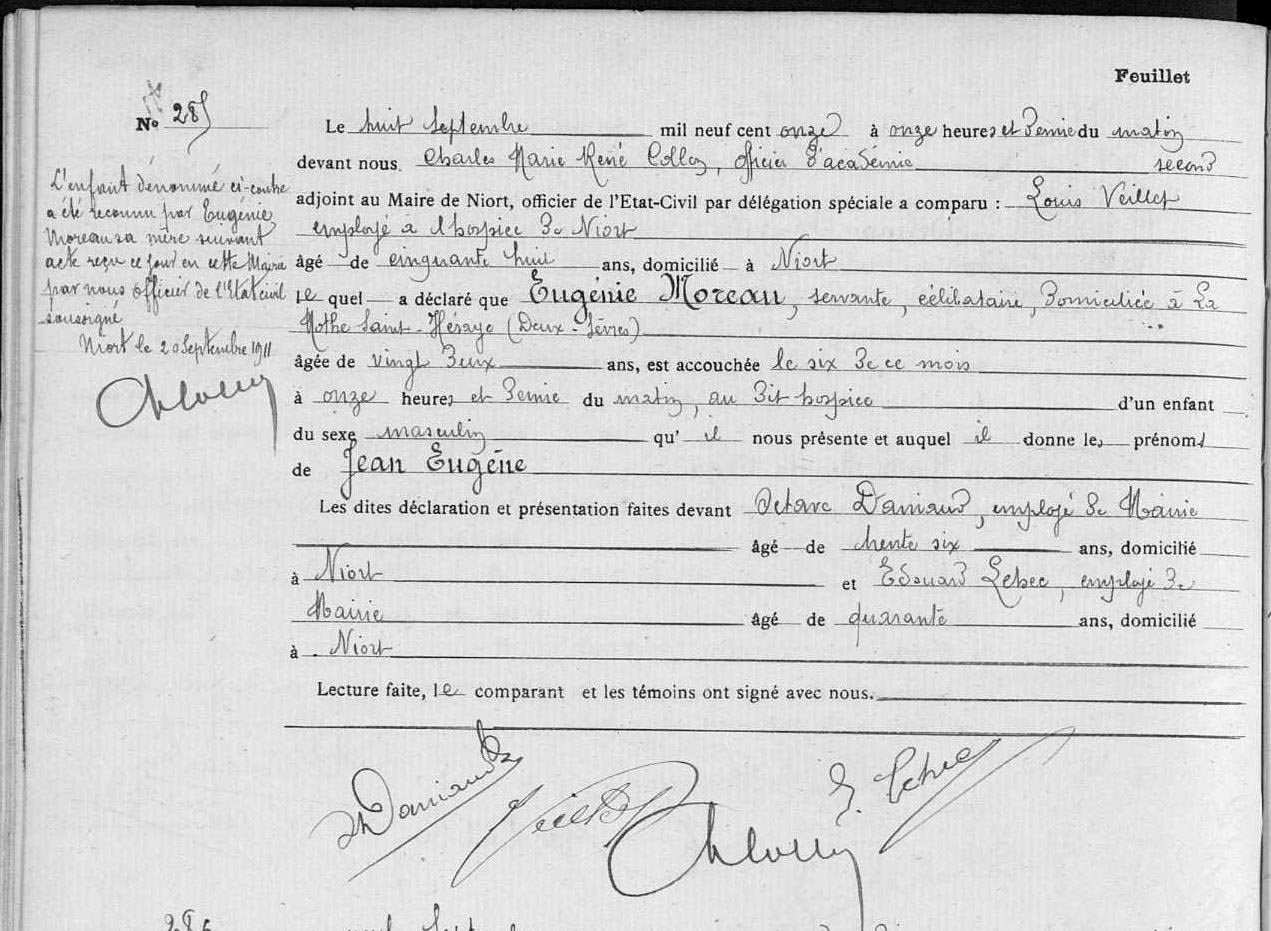 Feuillet
No 285
Le huit Septembre mil neuf cent onze à onze heures et demie du matin
devant nous. Charles Marie René Collon, officier d'académie second
adjoint au Maire de Niort, officier de l'Etat-Civil par délégation spéciale a comparu : Louis Veillet
employé à l'hospice de Niort
âgé de cinquante huit ans, domicilié à Niort
le quel a déclaré que Eugénie Moreau, servante, célibataire, domiciliée à La
Mothe Saint-Héraye (Deux-Sèvres)
âgée de vingt deux ans, est accouchée le six de ce mois
à onze heures et demie du matin, au dit hospice d'un enfant
du sexe masculin qu' il nous présente et auquel il donne les prénoms
de Jean Eugène
Les dites déclaration et présentation faites devant Octave Daniaud, employé de Mairie
âgé de trente six ans, domicilié
à Niort et Edouard Lebec, employé de
Mairie âgé de quarante ans, domicilié
à . Niort
Lecture faite, le comparant et les témoins ont signé avec nous.
L'enfant dénommé ci-contre
a été reconnu par Eugénie
Moreau sa mère suivant
acte reçu ce jour en cette Mairie
par nous officier de l'Etat civil
soussigné
Niort le 20 Septembre 1911
Daniaud
Veillet
E. Lebec
286